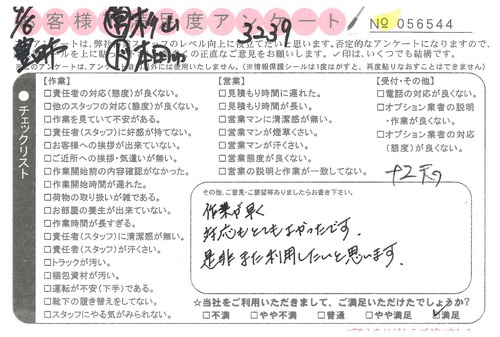 客様満足度アンケート
No 056544
3239
アンケートは、弊社
スタッフのレベル向上に役立てたいと思います。否定的なアンケートになりますので、
の正直なご意見をお願いします。✓印は、いくつでも結構です。
アンケート以外には使用いたしません。(※情報保護シールは1度はがすと、再度貼りなおすことはできません)
チェックリスト
【作業】
□責任者の対応(態度)が良くない。
□他のスタッフの対応(態度)が良くない。
□作業を見ていて不安がある。
□責任者(スタッフ)に好感が持てない。
□お客様への挨拶が出来ていない。
□ご近所への挨拶・気遣いが無い。
□作業開始前の内容確認がなかった。
□作業開始時間が遅れた。
□荷物の取り扱いが雑である。
□お部屋の養生が出来ていない。
□作業時間が長すぎる。
□責任者(スタッフ)に清潔感が無い。
□責任者(スタッフ)が汗くさい。
□トラックが汚い。
□梱包資材が汚い。
□運転が不安(下手)である。
□靴下の履き替えをしてない。
□スタッフにやる気がみられない。
【営業】
□見積もり時間に遅れた。
□見積もり時間が長い。
□営業マンに清潔感が無い。
□営業マンが煙草くさい。
□営業マンが汗くさい。
□営業態度が良くない。
□営業の説明と作業が一致してない。
【受付・その他】
□電話の対応が良くない。
□オプション業者の説明
・作業が良くない。
□オプション業者の対応
(態度)が良くない。
その他、ご意見・ご要望等ありましたらお書き下さい。
作業が早く
対応もとてもよかったです。
是非また利用したいと思います。
☆当社をご利用いただきまして、ご満足いただけたでしょうか?
□不満 □やや不満 □普通 □やや満足 ☑満足